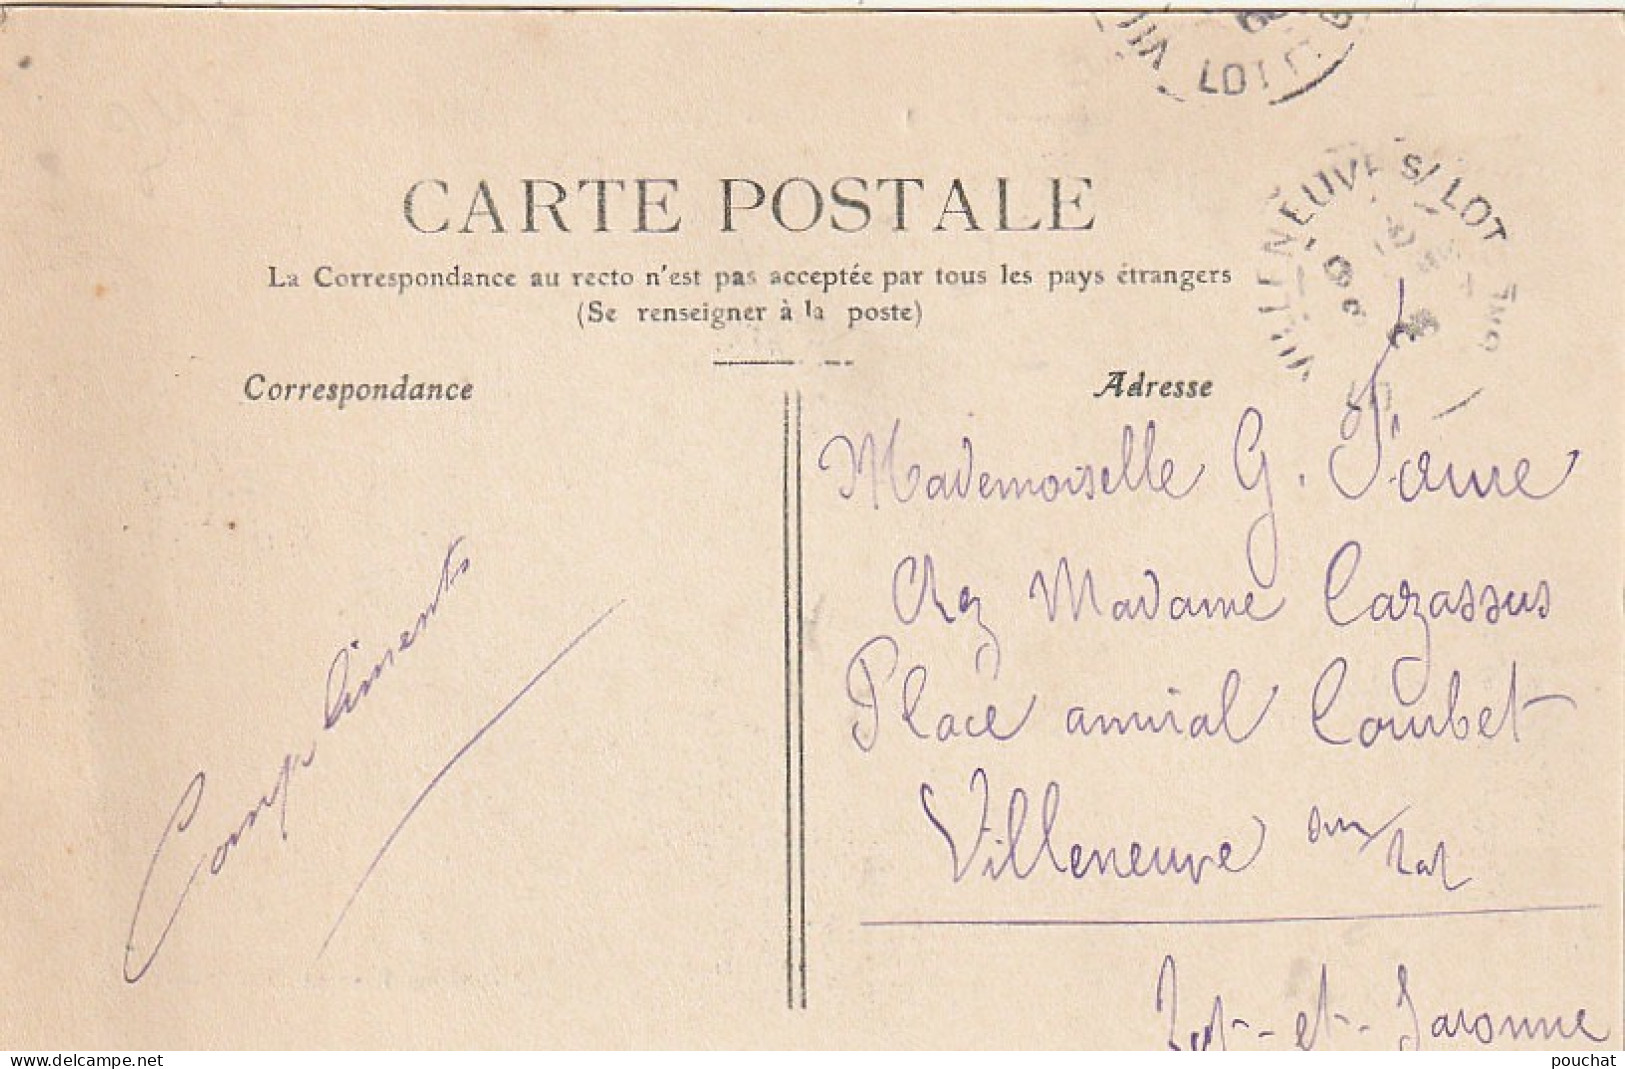 LOT
CARTE POSTALE
VILLENEUVE S/ LOT
La Correspondance au recto n'est pas acceptée par tous les pays étrangers
(Se renseigner à la poste)
Correspondance
Adresse
Mademoiselle G.
Chez Madame Cazassus
Place amiral Courbet
Villeneuve sur Lot
Lot-et-Garonne
Compliments
www.delcampe.net
pouchat